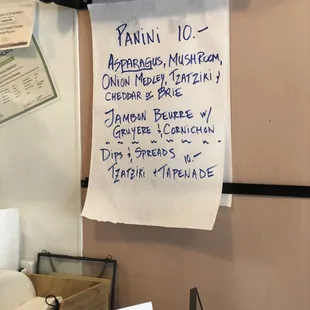 PANINI 10.-
ASPARAGUS, MUSHROOM,
ONION MEDLEY, TZATZIKI &
CHEDDAR or BRIE
JAMBON BEURRE W/
GRUYERE & CORNICHON
DIPS & SPREADS 10.-
TZATZIKI + TAPENADE